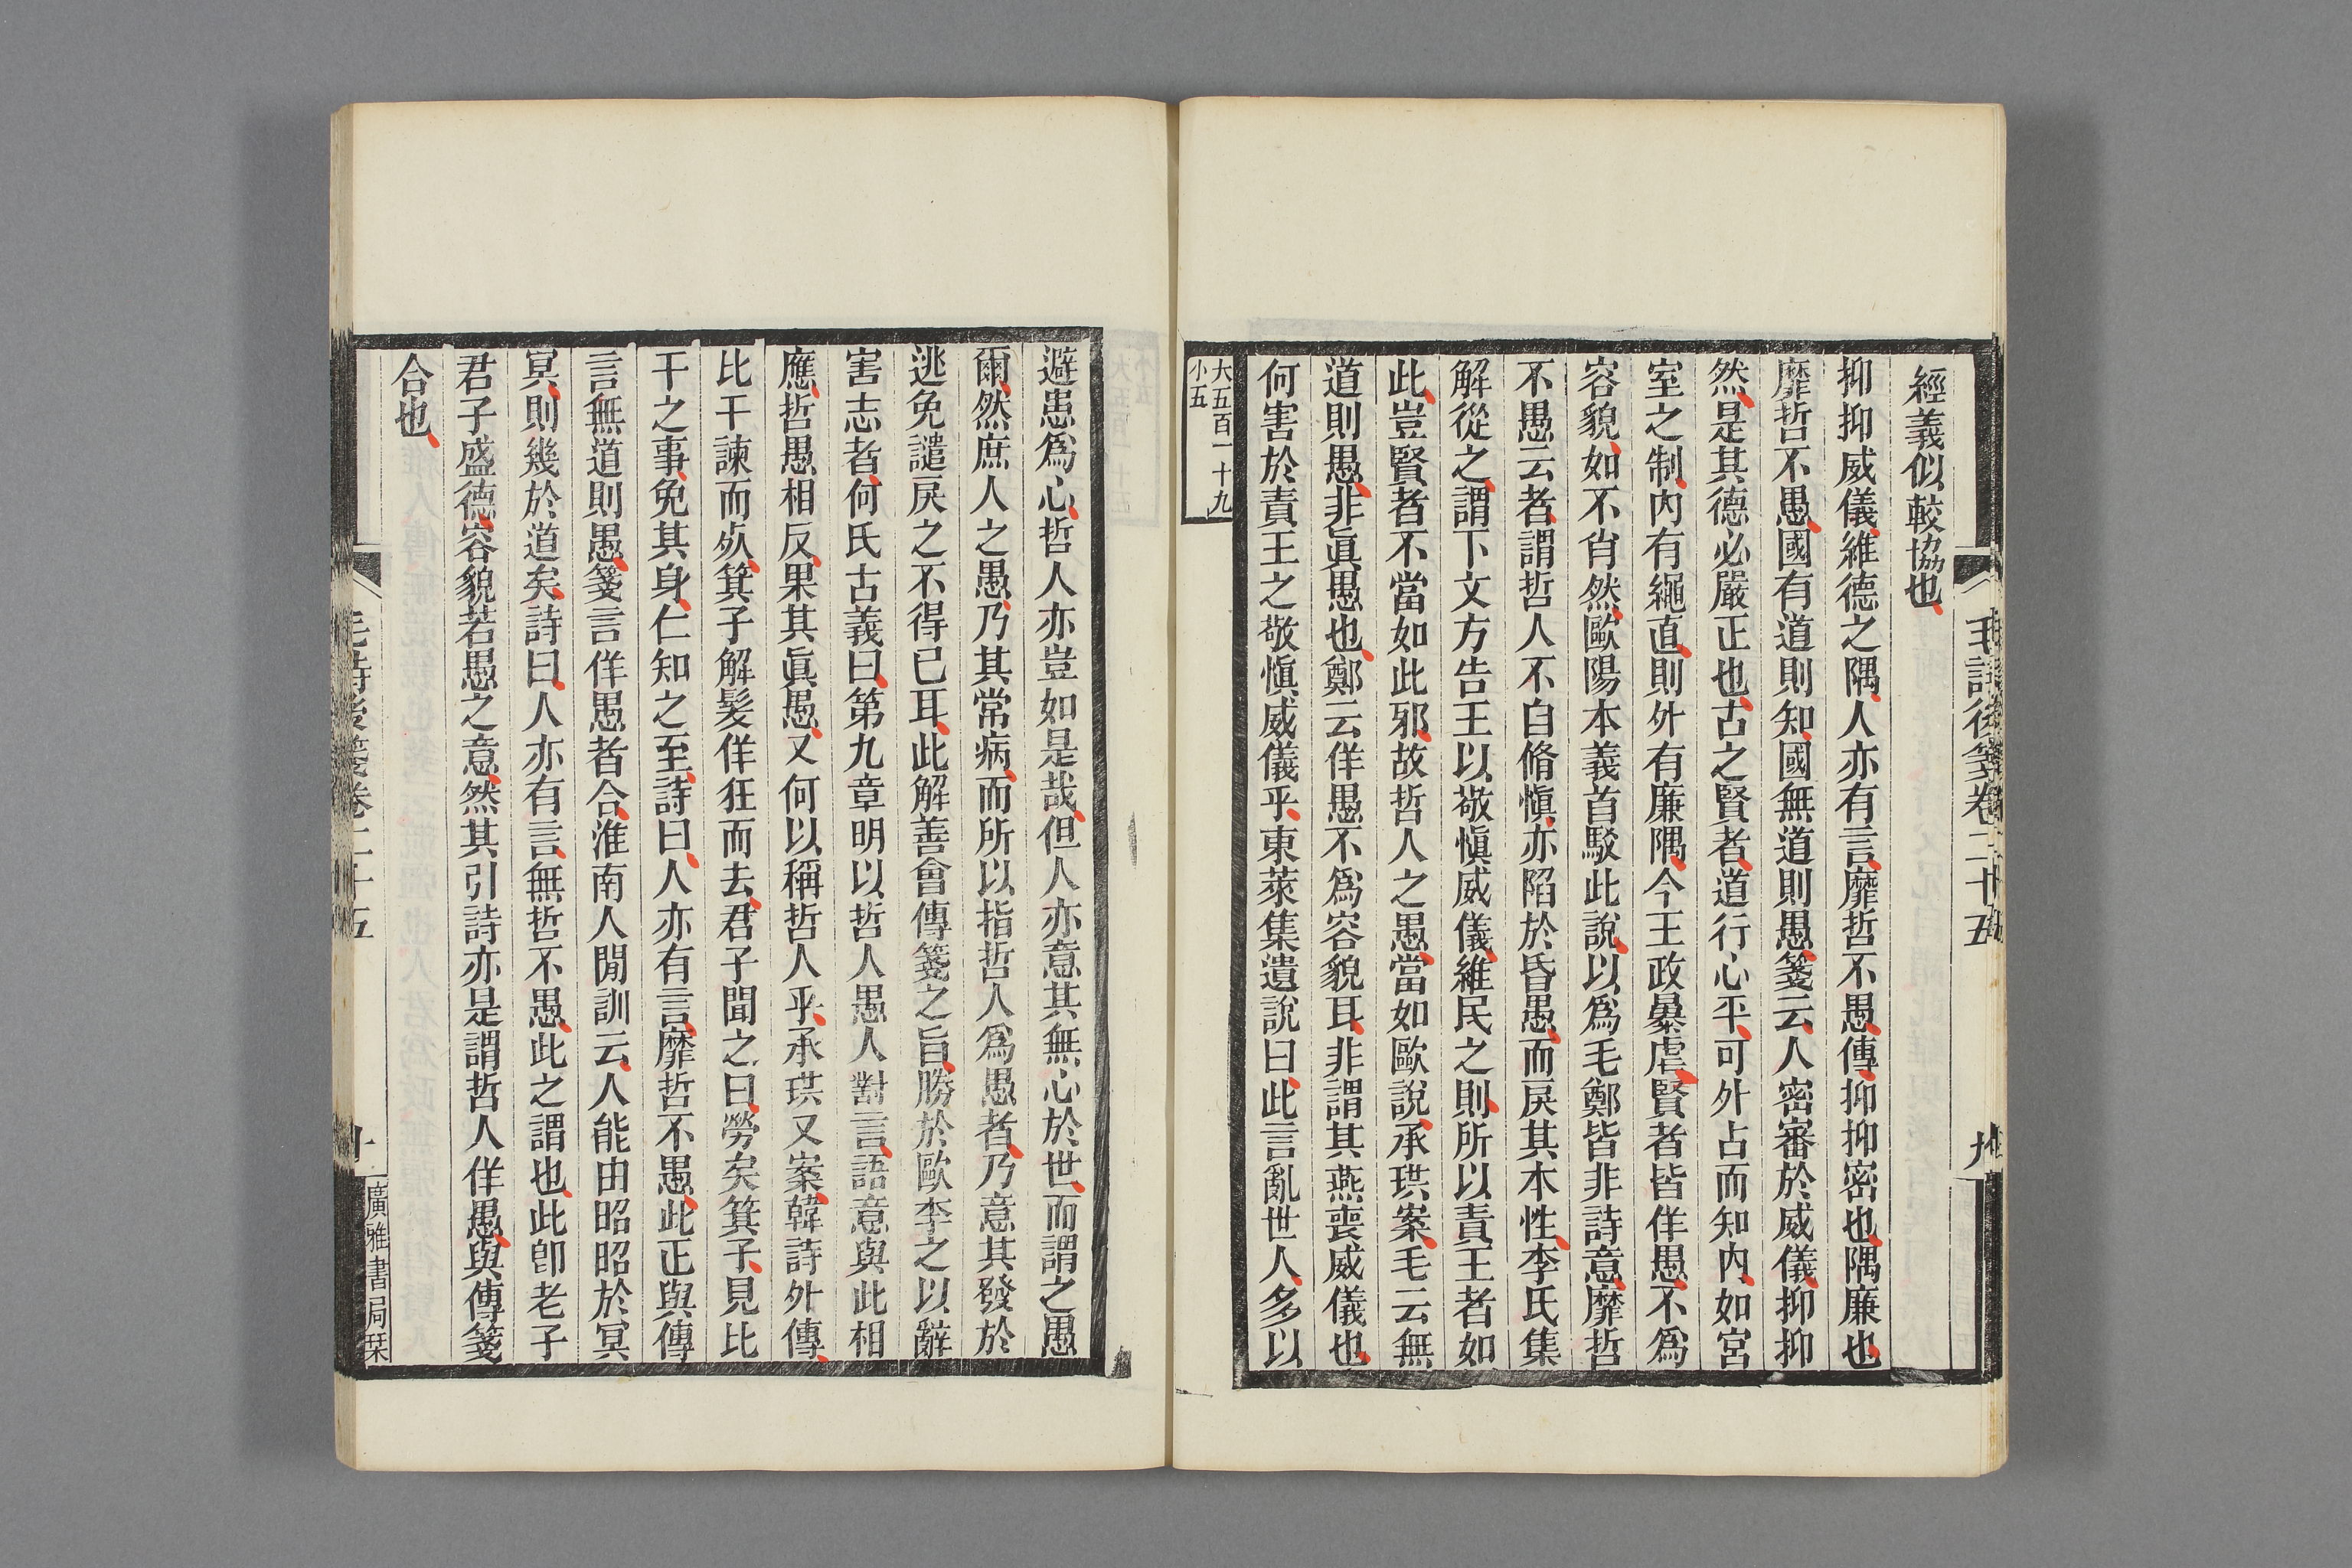 經義似較協也
抑抑威儀維德之隅人亦有言靡哲不愚傳抑抑密也隅廉也
靡哲不愚國有道則知國無道則愚箋云人密審於威儀抑抑
然是其德必嚴正也古之賢者道行心平可外占而知內如宮
室之制內有繩直則外有廉隅今王政暴虐賢者皆佯愚不爲
容貌如不肖然歐陽本義首駁此說以爲毛鄭皆非詩意靡哲
不愚云者謂哲人不自脩慎亦陷於昏愚而戾其本性李氏集
解從之謂下文方告王以敬慎威儀維民之則所以責王者如
此豈賢者不當如此邪故哲人之愚當如歐說承珙案毛云無
道則愚非眞愚也鄭云佯愚不爲容貌耳非謂其燕喪威儀也
何害於責王之敬慎威儀乎東萊集遺說曰此言亂世人多以
大五百一十九
小五
毛詩後箋卷二十五
九
避患爲心哲人亦豈如是哉但人亦意其無心於世而謂之愚
爾然庶人之愚乃其常病而所以指哲人爲愚者乃意其發於
逃免譴戾之不得已耳此解善會傳箋之旨勝於歐李之以辭
害志者何氏古義曰第九章明以哲人愚人對言語意與此相
應哲愚相反果其眞愚又何以稱哲人乎承珙又案韓詩外傳
比干諫而死箕子解髮佯狂而去君子聞之曰勞矣箕子見比
干之事免其身仁知之至詩曰人亦有言靡哲不愚此正與傳
言無道則愚箋言佯愚者合淮南人閒訓云人能由昭昭於冥
冥則幾於道矣詩曰人亦有言無哲不愚此之謂也此卽老子
君子盛德容貌若愚之意然其引詩亦是謂哲人佯愚與傳箋
合也
毛詩後箋卷二十五
十
廣雅書局栞